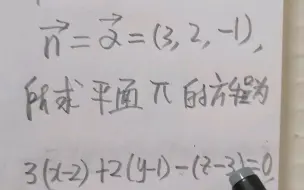 n⃗ = α⃗ = (3, 2, -1),
所求平面 π 的方程为
3(x-2)+2(y-1)-(z-3)=0